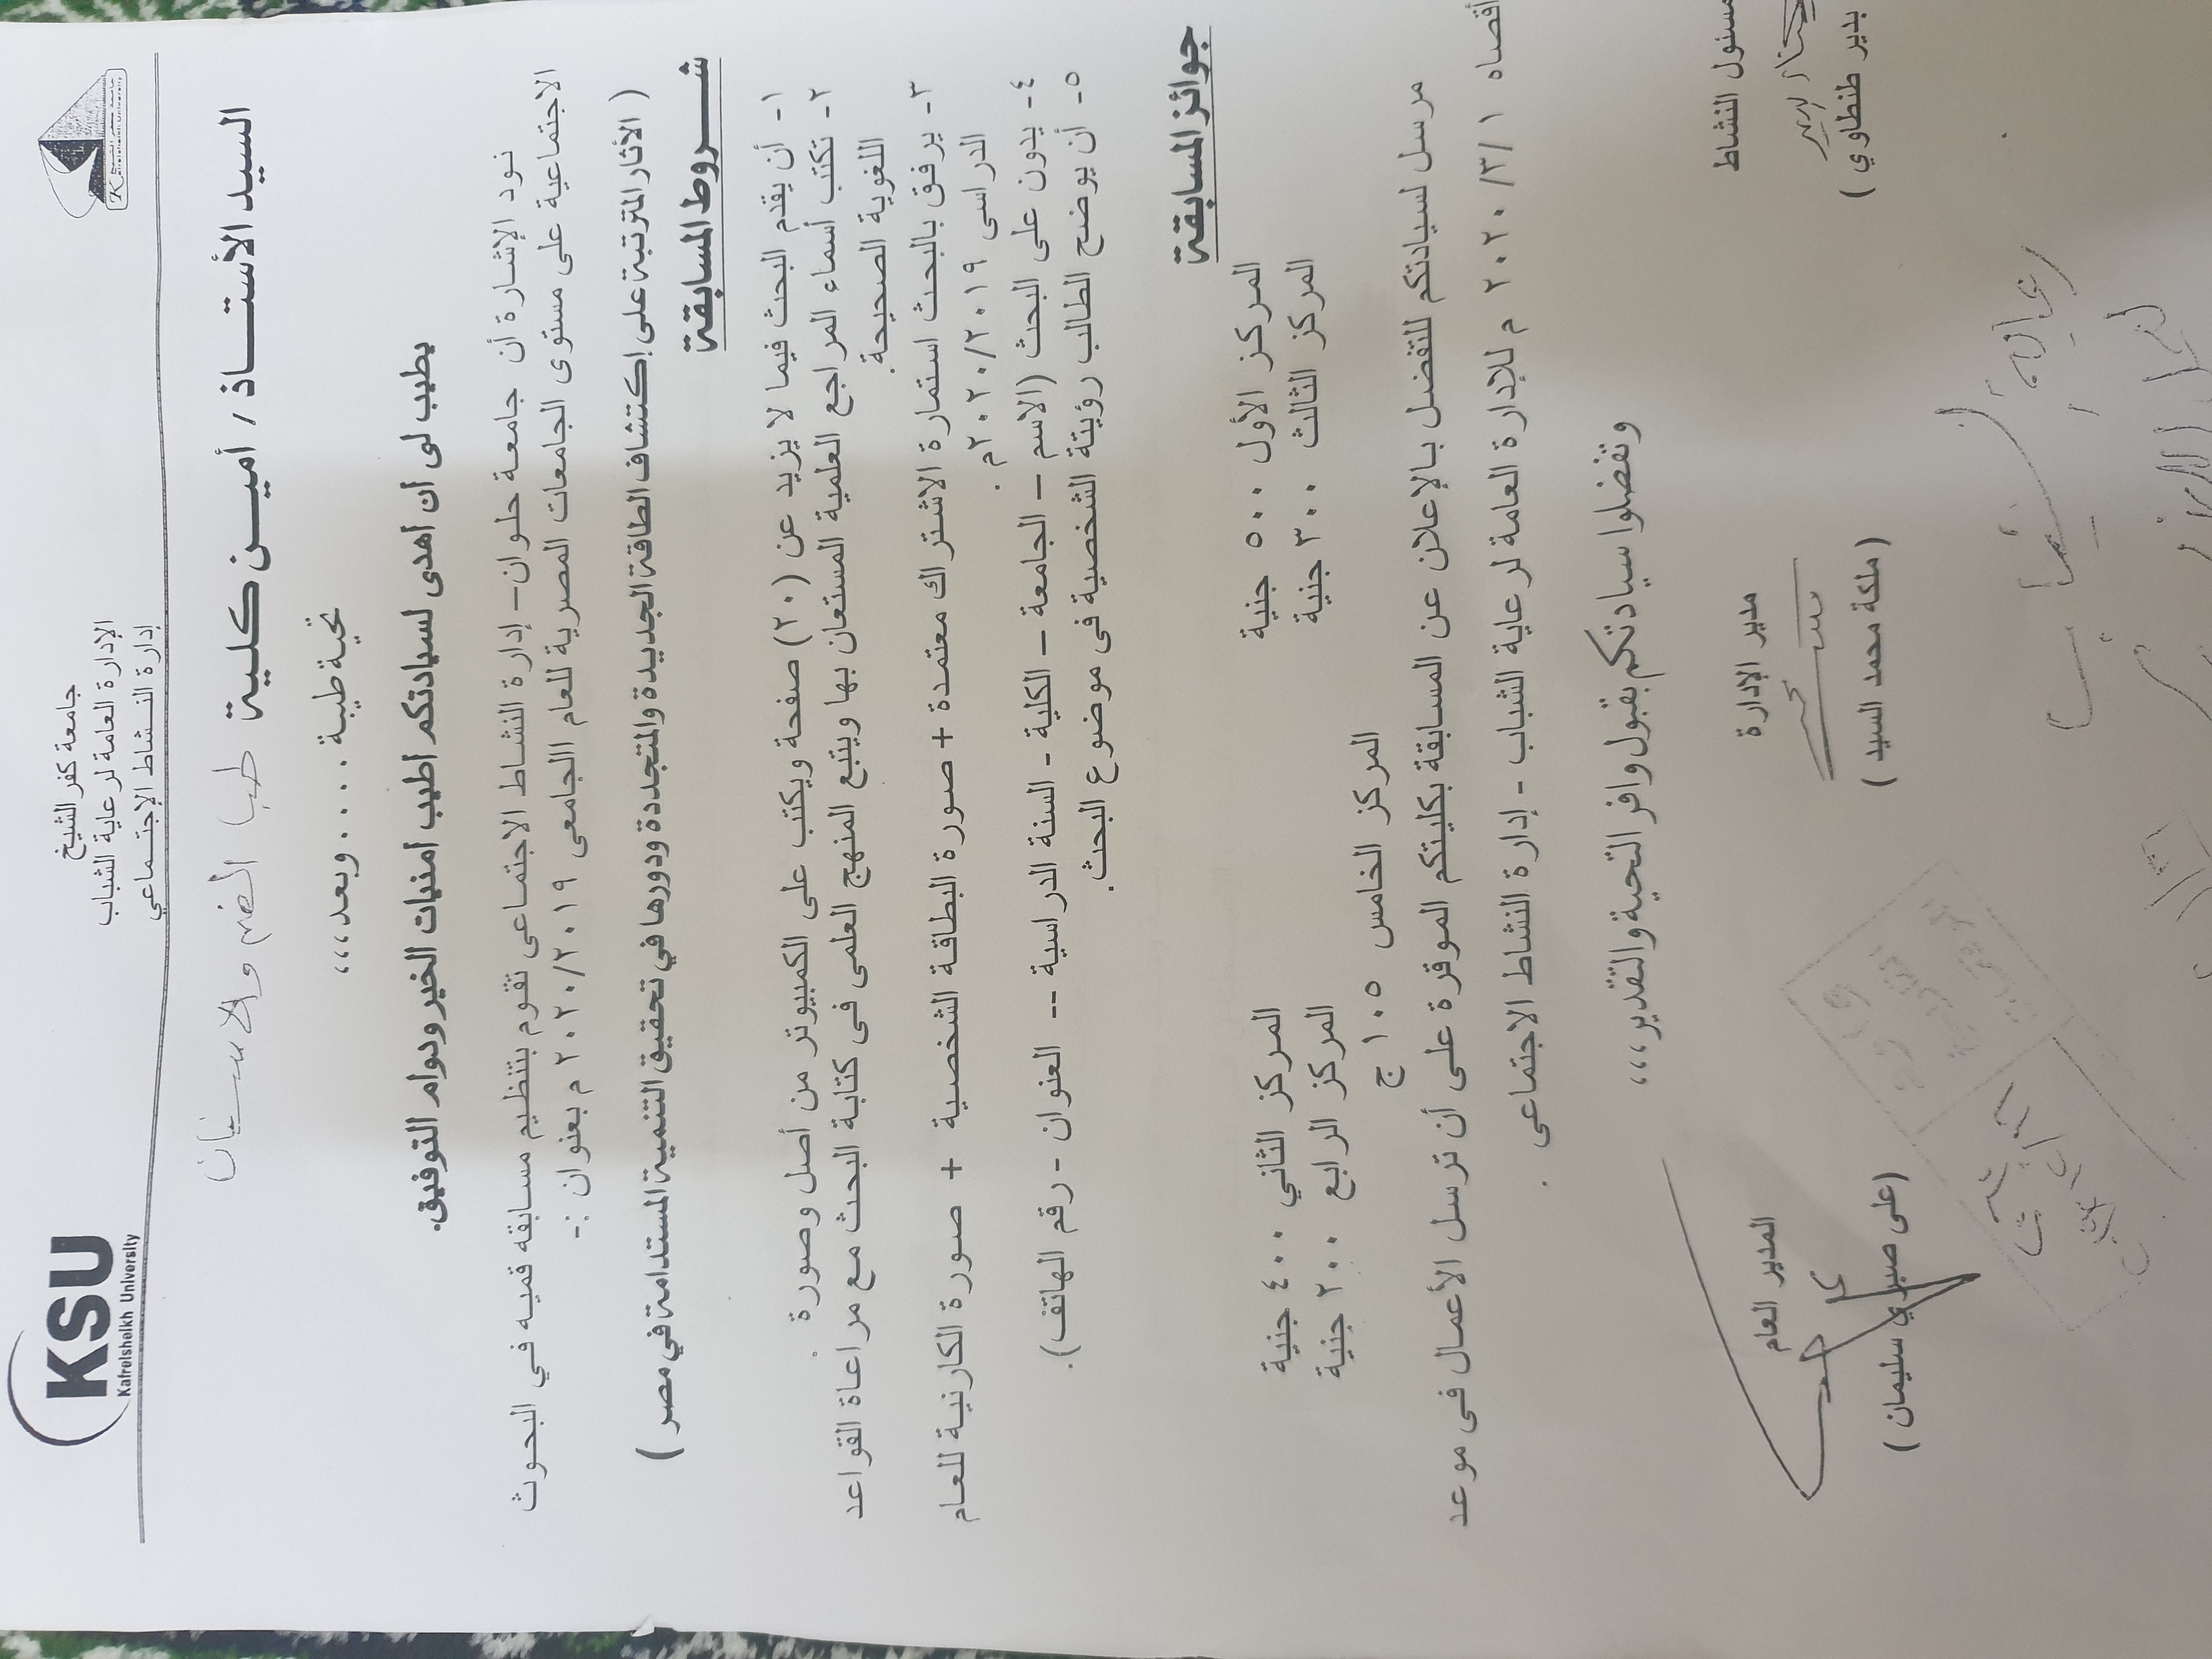 KSU
Kafrelsheikh University
جامعة كفر الشيخ
الإدارة العامة لرعاية الشباب
إدارة النشاط الإجتماعي
السيد الأستاذ / أمين كلية طب الفم والاسنان
تحية طيبة .... وبعد،،،
يطيب لى أن أهدى لسيادتكم أطيب أمنيات الخير ودوام التوفيق.
نود الإشارة أن جامعة حلوان – إدارة النشاط الاجتماعى تقوم بتنظيم مسابقه قميه في البحوث
الاجتماعية على مستوى الجامعات المصرية للعام االجامعى ٢٠٢٠/٢٠١٩ م بعنوان :-
( الأثار المترتبة على إكتشاف الطاقة الجديدة والمتجددة ودورها في تحقيق التنمية المستدامة في مصر )
شـــروط المسابقة
١- أن يقدم البحث فيما لا يزيد عن (٢٠) صفحة ويكتب على الكمبيوتر من أصل وصورة .
٢- تكتب أسماء المراجع العلمية المستعان بها ويتبع المنهج العلمى فى كتابة البحث مع مراعاة القواعد
اللغوية الصحيحة.
٣- يرفق بالبحث استمارة الاشتراك معتمدة + صورة البطاقة الشخصية + صورة الكارنية للعام
الدراسى ٢٠٢٠/٢٠١٩م .
٤- يدون على البحث (الاسم – الجامعة – الكلية - السنة الدراسية -- العنوان - رقم الهاتف).
٥- أن يوضح الطالب رؤيتة الشخصية فى موضوع البحث.
جوائز المسابقة
المركز الأول ٥٠٠ جنية المركز الثاني ٤٠٠ جنية
المركز الثالث ٣٠٠ جنية المركز الرابع ٢٠٠ جنية
المركز الخامس ١٠٥ ج
مرسل لسيادتكم للتفضل بالإعلان عن المسابقة بكليتكم الموقرة على أن ترسل الأعمال فى موعد
أقصاه ٢٠٢٠/٣/١ م للإدارة العامة لرعاية الشباب - إدارة النشاط الاجتماعى .
وتفضلوا سيادتكم بقبول وافر التحية والتقدير،،،
مسئول النشاط مدير الإدارة المدير العام
بدير طنطاوي ) ( ملكة محمد السيد ) (على صبري سليمان )
رعاية